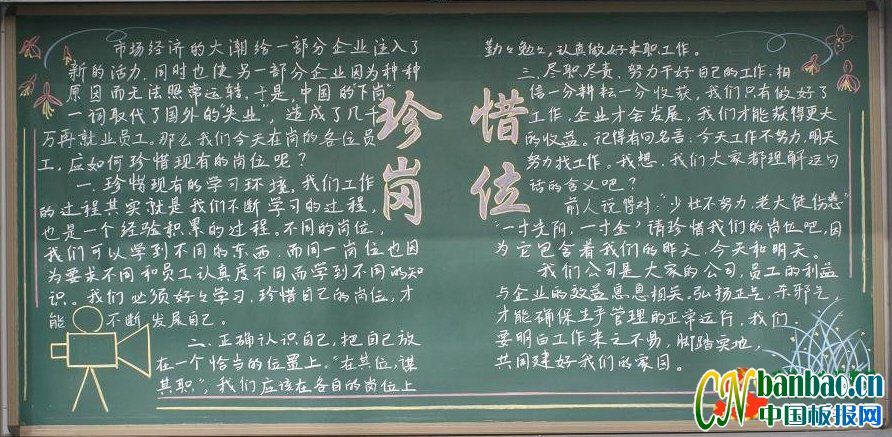 珍惜
岗位
市场经济的大潮给一部分企业注入了
新的活力.同时也使另一部分企业因为种种
原因而无法照常运转.于是,中国的"下岗"
一词取代了国外的"失业",造成了几百
万再就业员工。那么我们今天在岗的各位员
工,应如何珍惜现有的岗位呢?
一.珍惜现有的学习环境,我们工作
的过程其实就是我们不断学习的过程,
也是一个经验积累的过程。不同的岗位,
我们可以学到不同的东西.而同一岗位也因
为要求不同和员工认真度不同而学到不同的知
识.。我们必须好々学习,珍惜自己的岗位,才
能不断发展自己。
二.正确认识自己,把自己放
在一个恰当的位置上。"在其位,谋
其职",我们应该在各自的岗位上
勤々勉々,认真做好本职工作。
三.尽职尽责.努力干好自己的工作.相
信一分耕耘一分收获,我们只有做好了
工作,企业才会发展,我们才能获得更大
的收益。记得有句名言:今天工作不努力,明天
努力找工作。我想.我们大家都理解这句
话的含义吧?
前人说得对:"少壮不努力.老大徒伤悲"
"一寸光阴,一寸金"请珍惜我们的岗位吧,因
为它包含着我们的昨天.今天和明天。
我们公司是大家的公司,员工的利益
与企业的效益息息相关,弘扬正气.
才能确保生产管理的正常运行,我们
要明白工作来之不易,脚踏实地,
共同建好我们的家园。
CN banbao.cn
中国板报网